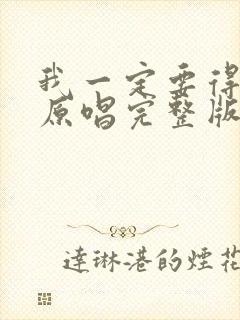 我一定要得
原唱完整版
達琳港的煙花